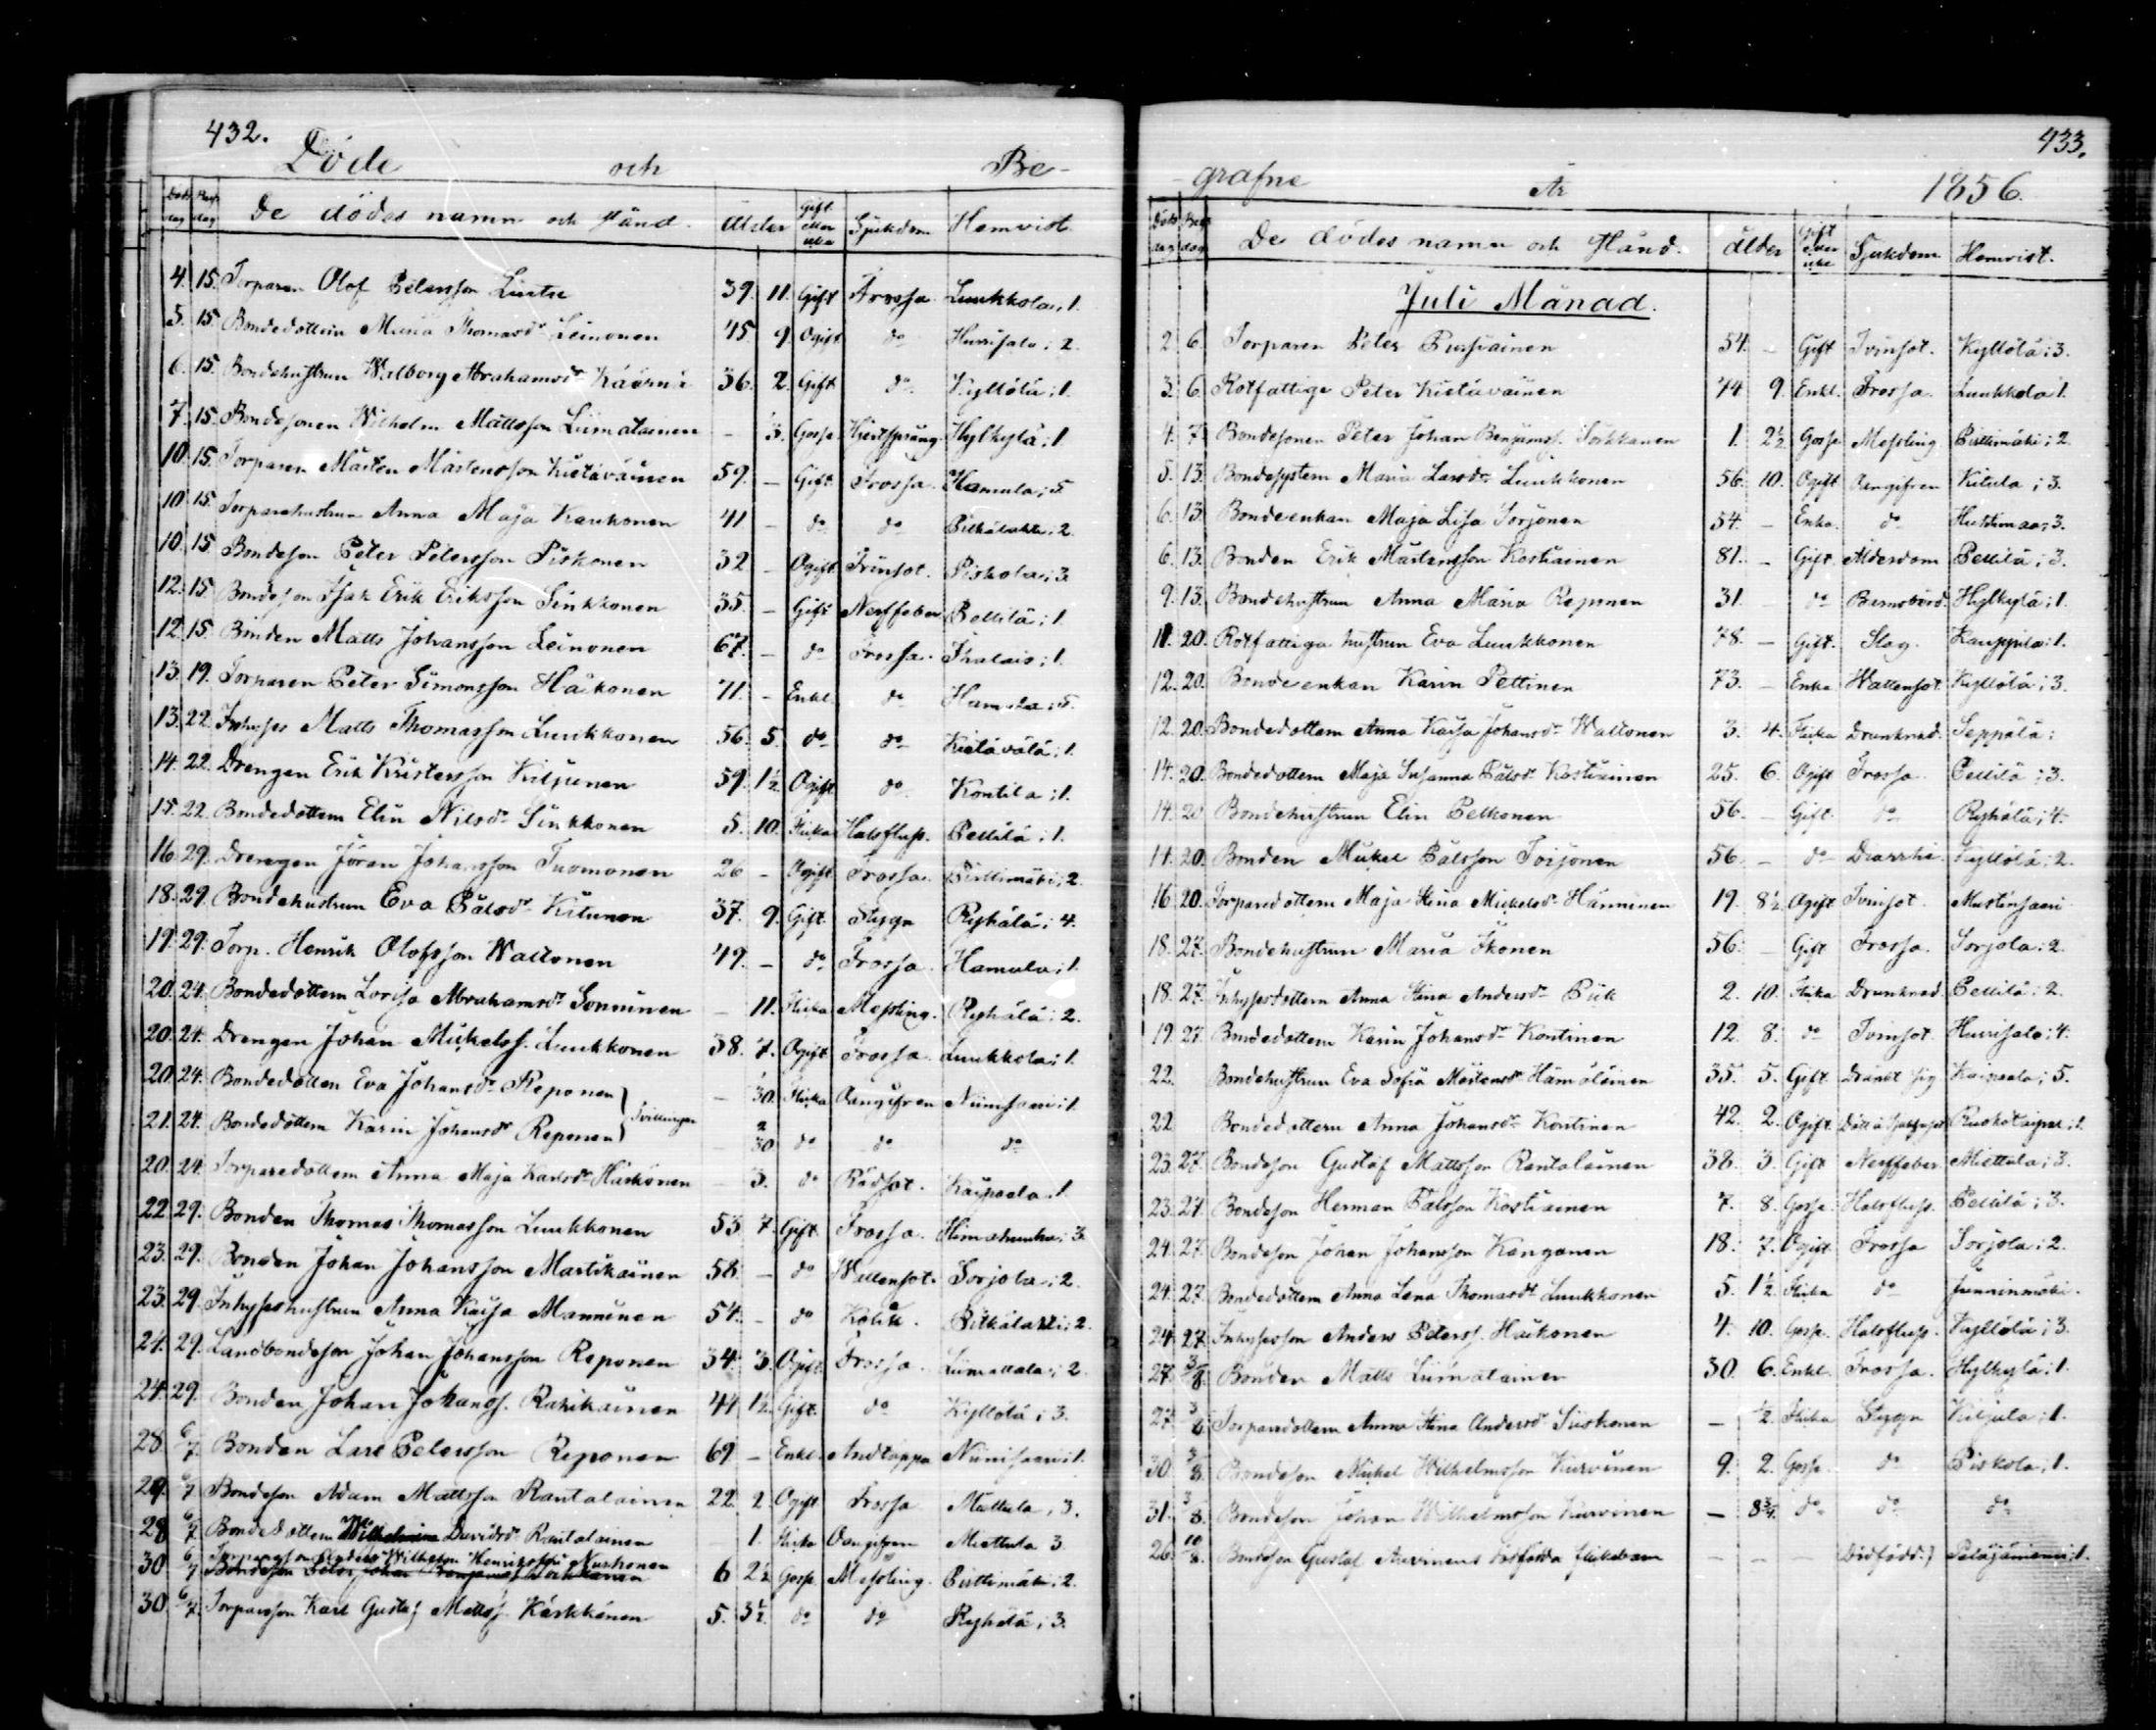 432.
Döde och Be-
Döds dag Begr. dag De dödas namn och stånd. Ålder Gift eller icke Sjukdom Hemvist.
4. 15. Torparen Olof Petersson Lintu 39. 11. Gift Frossa Luukkola; 1.
5. 15. Bondedottern Maria Thomasdr Leinonen 45. 9. Ogift do Hurrisalo; 2.
6. 15. Bondehustrun Walborg Abrahamsdr Käärnä 36. 2. Gift do Kyllölä; 1.
7. 15. Bondesonen Wilhelm Mattsson Liimatainen – 3. Gosse Hjertsprång Hylkylä; 1
10. 15. Torparen Mårten Mårtensson Kietäväinen 59. – Gift Frossa. Hamula; 5
10 15. Torparehustrun Anna Maja Kaukonen 41 – do do Pitkälaks; 2.
10. 15 Bondeson Peter Petersson Piskonen 32 – Ogift Tvinsot. Piskola; 3
12. 15 Bondeson Isak Erik Eriksson Sinkkonen 35. – Gift Nerffeber Pellilä; 1.
12. 15. Bonden Matts Johansson Leinonen 67. – do Frossa. Ihalais; 1.
13. 19. Torparen Peter Simonsson Häkonen 71. – Enkl. do Hamula; 5.
13. 22. Inhyses Matts Thomasson Luukkonen 56. 5. do do Kietävälä; 1.
14. 22. Drengen Erik Kristersson Kiljunen 59. 1½ Ogift do Kontila; 1.
15. 22. Bondedottern Elin Nilsdr Sinkkonen 5. 10. Flicka Halsfluss. Pellilä; 1.
16. 29. Drengen Jöran Johansson Tuomonen 26 – Ogift Frossa. Pirttimäki; 2
18. 29. Bondehustrun Eva Pålsdr Kitunen 37. 9. Gift Stygn Ryhälä; 4.
19. 29. Torp. Henrik Olofsson Waltonen 49. – do Frossa. Hamula; 1.
20. 24. Bondedottern Lovisa Abrahamsdr Sonninen – 11. Flicka Messling. Ryhälä; 2.
20. 24. Drengen Johan Mickelss. Luukkonen 38. 7. Ogift Frossa Luukkola; 1.
20. 24. Bondedottern Eva Johansdr Reponen } Tvillingar – 1/30. Flicka Oangifven Niinisaari; 1.
21. 24. Bondedottern Karin Johansdr Reponen – 2/30 do do do
20. 24. Torparedottern Anna Maja Karlsdr Häikönen – 3. do Rödsot. Kaipaala. 1.
22 29. Bonden Thomas Thomasson Luukkonen 53 7. Gift Frossa. Himahanka; 3.
23. 29. Bonden Johan Johansson Martikainen 58. – do Wattensot. Sorjola; 2.
23. 29. Inhyseshustrun Anna Kaisa Manninen 54. – do Kolik. Pitkälaks; 2.
24. 29. Landbondeson Johan Johansson Reponen 34. 3. Ogift Frossa. Liimattala; 2
24. 29. Bonden Johan Johanss. Rahikainen 44 1½. Gift. do Kyllölä; 3.
28. 6/7. Bonden Lars Petersson Reponen 69 – Enkl. Andtäppa Niinisaari; 1.
29. 6/7 Bondeson Adam Mattsson Rantalainen 22. 2 Ogift Frossa Miettula; 3.
28 6/7 Bondedottern Wilhelmina Davidsdr Rantalainen – 1. Flicka Oangifven Miettula 3.
30 6/7 Torpareson Anders Wilhelm Henriksson Nuuhonen
Bondeson Peter Johan Benjamss Sorkkanen 6 2½ Gosse Messling. Pirttimäki; 2.
30. 6/7. Torpareson Karl Gustaf Mattss. Kärkkänen 5. 3½. do do Ryhälä; 3.
433.
-grafne År 1856.
Döds dag Begr. dag De dödas namn och stånd. Ålder Gift eller icke Sjukdom Hemvist.
Juli Månad.
2 6. Torparen Peter Pursiainen 54. – Gift Tvinsot. Kyllölä; 3.
3. 6. Rotfattige Peter Kietäväinen 74 9. Enkl. Frossa. Luukkola 1.
4. 7 Bondesonen Peter Johan Benjamss. Sorkkanen 1. 2½ Gosse Messling Pirttimäki; 2.
5. 13. Bondesystern Maria Larsdr Luukkonen 56. 10. Ogift Oangifven Kitula; 3.
6. 13. Bondeenkan Maja Lisa Sorjonen 54. – Enka. do Huttimaa; 3.
6. 13. Bonden Erik Mårtensson Kostiainen 81. – Gift. Ålderdom Pellilä; 3.
9. 13. Bondehustrun Anna Maria Reponen 31. do Barnsbörd. Hylkylä; 1.
11. 20. Rotfattiga hustrun Eva Luukkonen 78. – Gift. Slag. Kauppila; 1.
12. 20. Bondeenkan Karin Pettinen 73. – Enka Wattensot Kyllölä; 3.
12. 20. Bondedottern Anna Kaisa Johansdr Waltonen 3. 4. Flicka Drunknad. Seppälä;
14. 20. Bondedottern Maja Susanna Pålsdr Kostiainen 25. 6. Ogift Frossa Pellilä; 3.
14. 20 Bondehustrun Elin Pelkonen 56. – Gift. do Ryhälä; 4.
11. 20. Bonden Mickel Pålsson Toijonen 56. – do Diarrhé. Kyllölä; 2.
16 20. Torparedottern Maja Stina Mickelsdr Hänninen 19. 8½ Ogift Tvinsot. Mustinsaari
18. 27. Bondehustrun Maria Ikonen 56. – Gift Frossa. Sorjola: 2.
18. 27. Inhysesdottern Anna Stina Andersdr Piik 2. 10. Flicka Drunknad. Pellilä: 2.
19. 27. Bondedottern Karin Johansdr Kontinen 12. 8. do Tvinsot. Hurrisalo; 4.
22. Bondehustrun Eva Sofia Mårtensdr Hämäläinen 35. 5. Gift. Dränkt sig Kaipaala; 5.
22 Bondedottern Anna Johansdr Kontinen 42. 2. Ogift. Ruokotaipal; 1.
23. 27. Bondeson Gustaf Mattsson Rantalainen 38. 3. Gift Nerffeber Miettula; 3.
23. 27. Bondeson Herman Pålsson Kostiainen 7. 8. Gosse. Halsfluss. Pellilä; 3.
24. 27. Bondeson Johan Johansson Kanganen 18. 7. Ogift. Frossa Sorjola; 2.
24. 27. Bondedottern Anna Lena Thomasdr Luukkonen 5. 1½. Flicka do Junninmäki.
24. 27. Inhysesson Anders Peterss. Häikonen 4. 10. Gosse. Halsfluss. Kyllölä; 3.
27. 3/8. Bonden Matts Liimatainen 30. 6. Enkl. Frossa. Hylkylä; 1.
27. 3/8 Torparedottern Anna Stina Andersdr Suokonen – ½. Flicka Stygn Kiljula; 1.
30 3/8. Bondeson Mickel Wilhelmsson Kurvinen 9. 2. Gosse. do Piskola; 1.
31. 3/8. Bondeson Johan Wilhelmsson Kurvinen – 8¾. do do do
26. 10/8. Bondeson Gustaf Auvinens dödfödda flickebarn – – – Dödfödd. Peläjäniemi; 1.